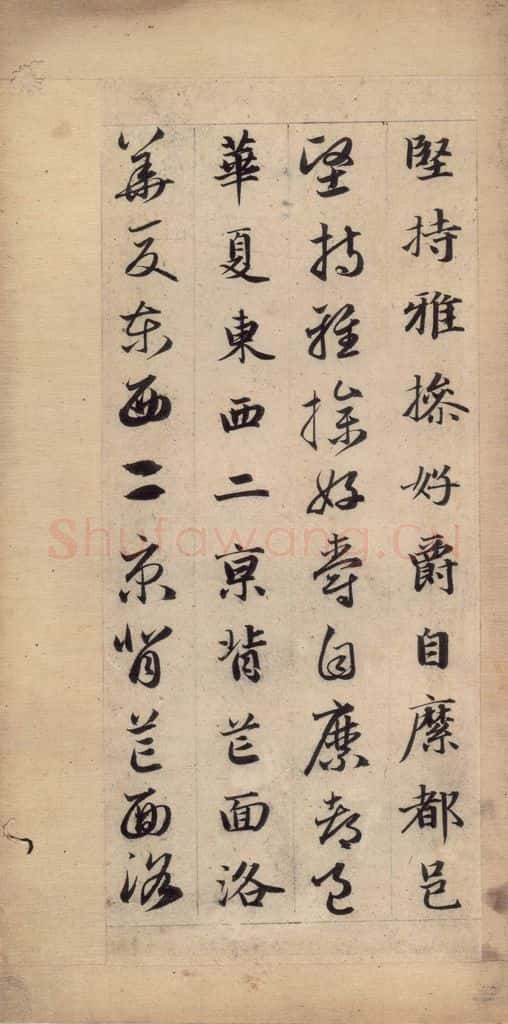 堅持雅操好爵自縻都邑
堅持雅操好爵自縻都邑
華夏東西二京背芒面洛
華夏東西二京背芒面洛
Shufawang.cn